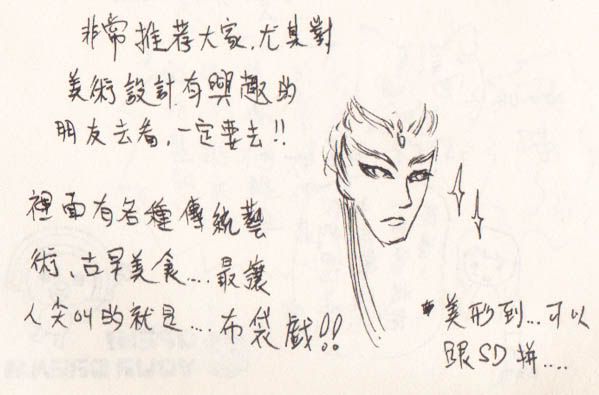 非常推荐大家,尤其對
美術設計有興趣的
朋友去看,一定要去!!
裡面有各種傳統藝
術、古早美食....最讓
人尖叫的就是....布袋戲!!
美形到...可以
跟SD拼....